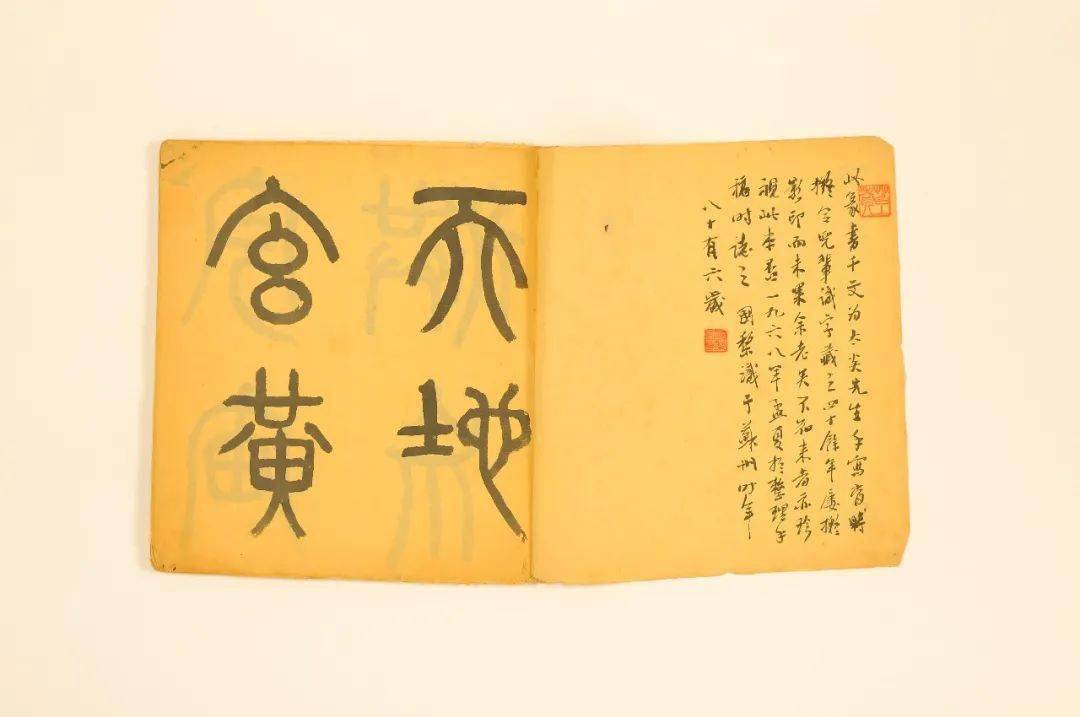 此篆書千文为太炎先生手寫當時
擬令兒輩識字藏之四十餘年屢擬
影印而未果余老矣不知来者亦珍
視此本否一九六八年孟夏於整理手
稿時誌之 國梨識于蘇州时年
八十有六歲
天地
宮黃